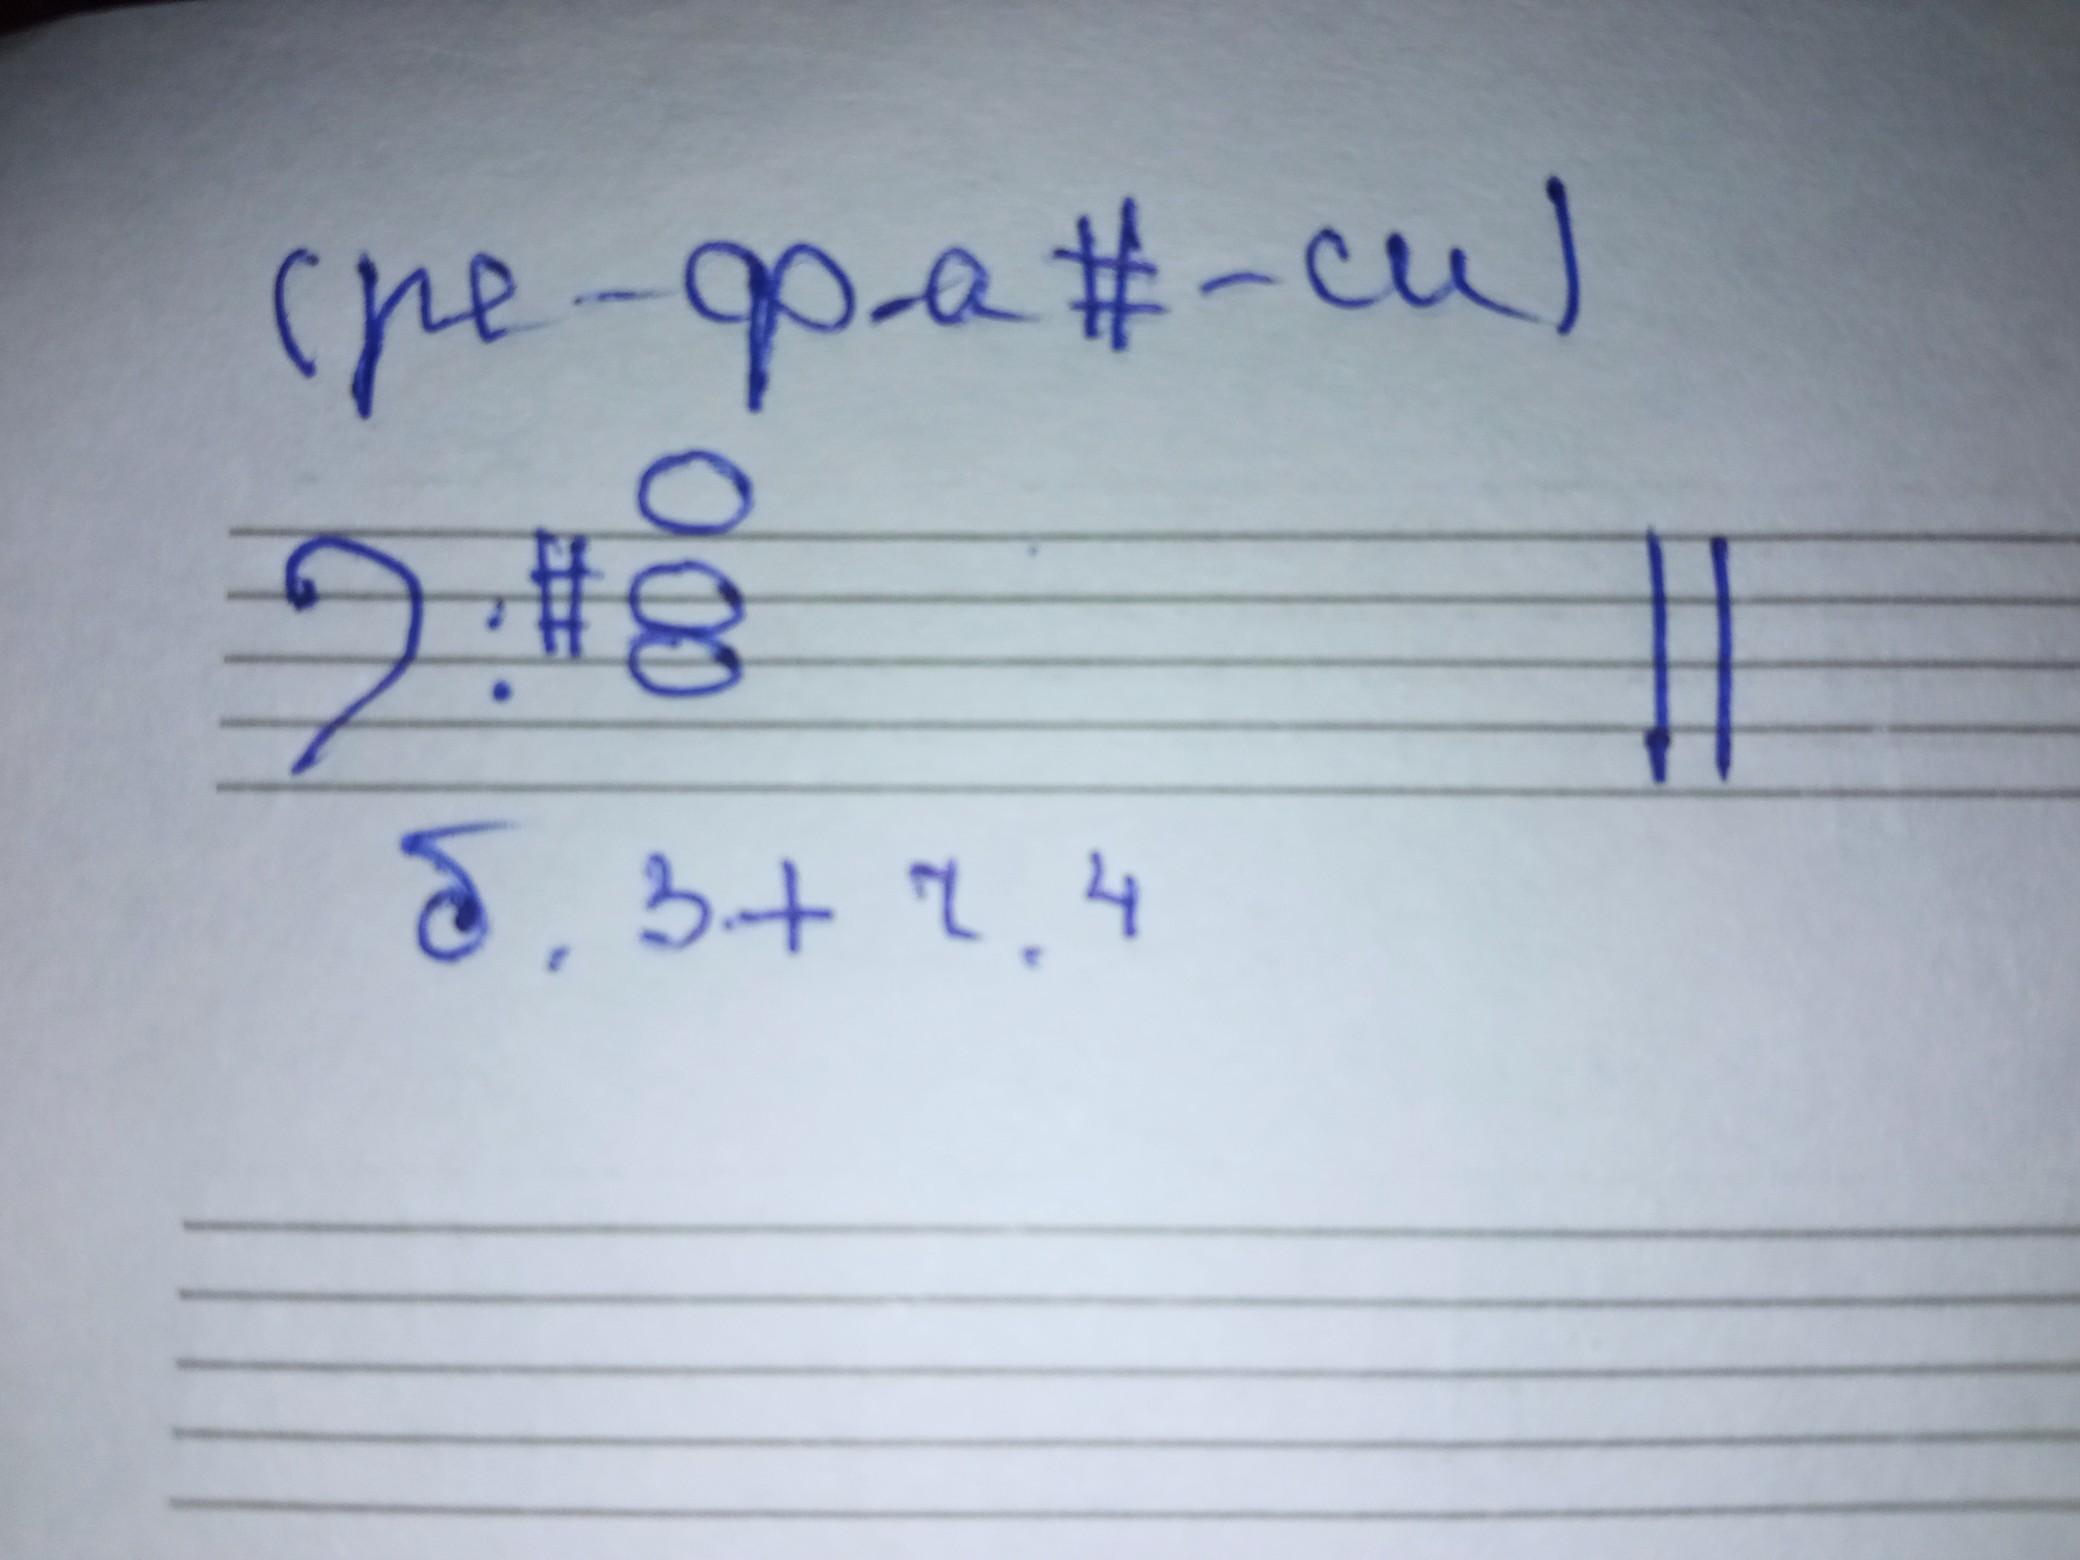 (ре-фа#-си)
б. 3+ ч. 4